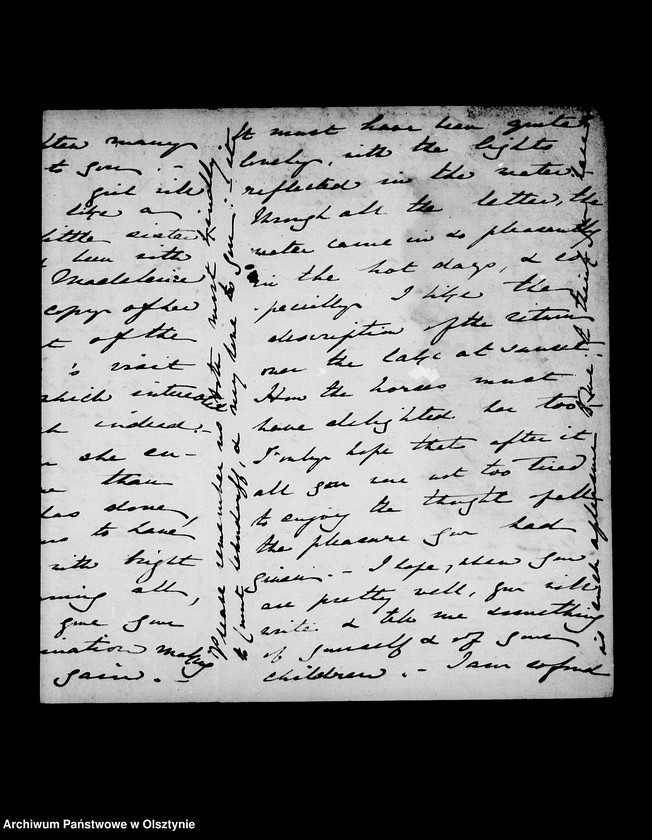 tten many
to you. -
girl will
like a
little sister
been with
Madeleine
copy of her
t of the
's visit
which interested
h indeed. -
she en-
than
has done,
us to have
with bright
ming all,
give you
mation making
gain. -
Please remember us both most kindly
to Count Lehndorff, & my love to you. -
It must have been quite
lovely, with the lights
reflected in the water,
through all the letter, the
water came in so pleasantly
in the hot days, & es-
pecially I like the
description of the return
over the lake at sunset.
How the horses must
have delighted her too
I only hope that after it
all you were not too tired
to enjoy the thought of all
the pleasure you had
given. - I hope, when you
are pretty well, you will
write & tell me something
of yourself & of your
children. - I am so fond